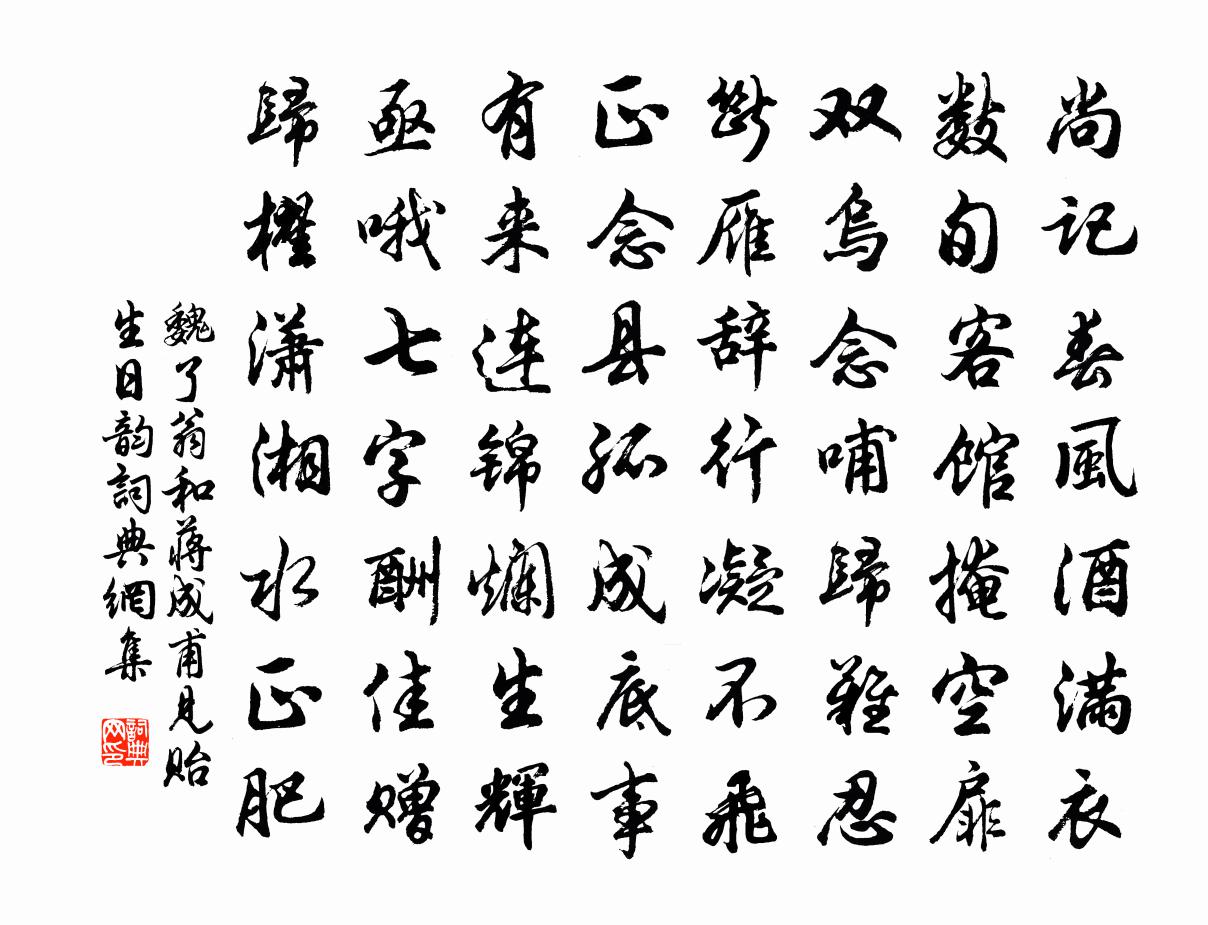 尚记春風酒满衣
数旬客馆掩空扉
双烏念哺歸難忍
断雁辞行凝不飛
正念县孤成底事
有来连锦爛生輝
亟哦七字酬佳赠
歸櫂潇湘水正肥
魏了翁和蒋成甫见贻
生日韵詞典網集
詞典
网印